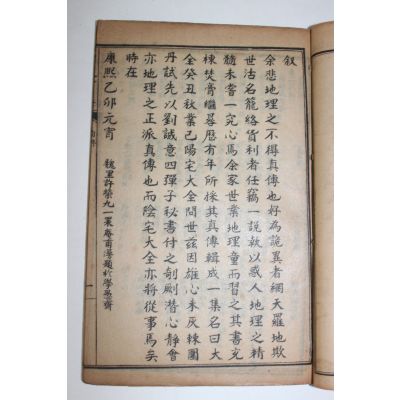 叙
余悲地理之不得真傳也好為詭異者網天羅地欺
世沽名籠絡貨利者任竊一說執以惑人地理之精
髓未嘗一究心焉余家世業地理童而習之其書充
棟焚膏繼晷歷有年所採其真傳輯成一集名曰大
全癸丑秋業已陽宅大全問世茲因雄心未灰棘圍
丹試先以劉誠意四彈子秘書付之剞劂潛心靜會
亦地理之正派真傳也而陰宅大全亦將從事焉矣
時在
康熙乙卯元宵
魏里許榮九一裴甫題於學易齋